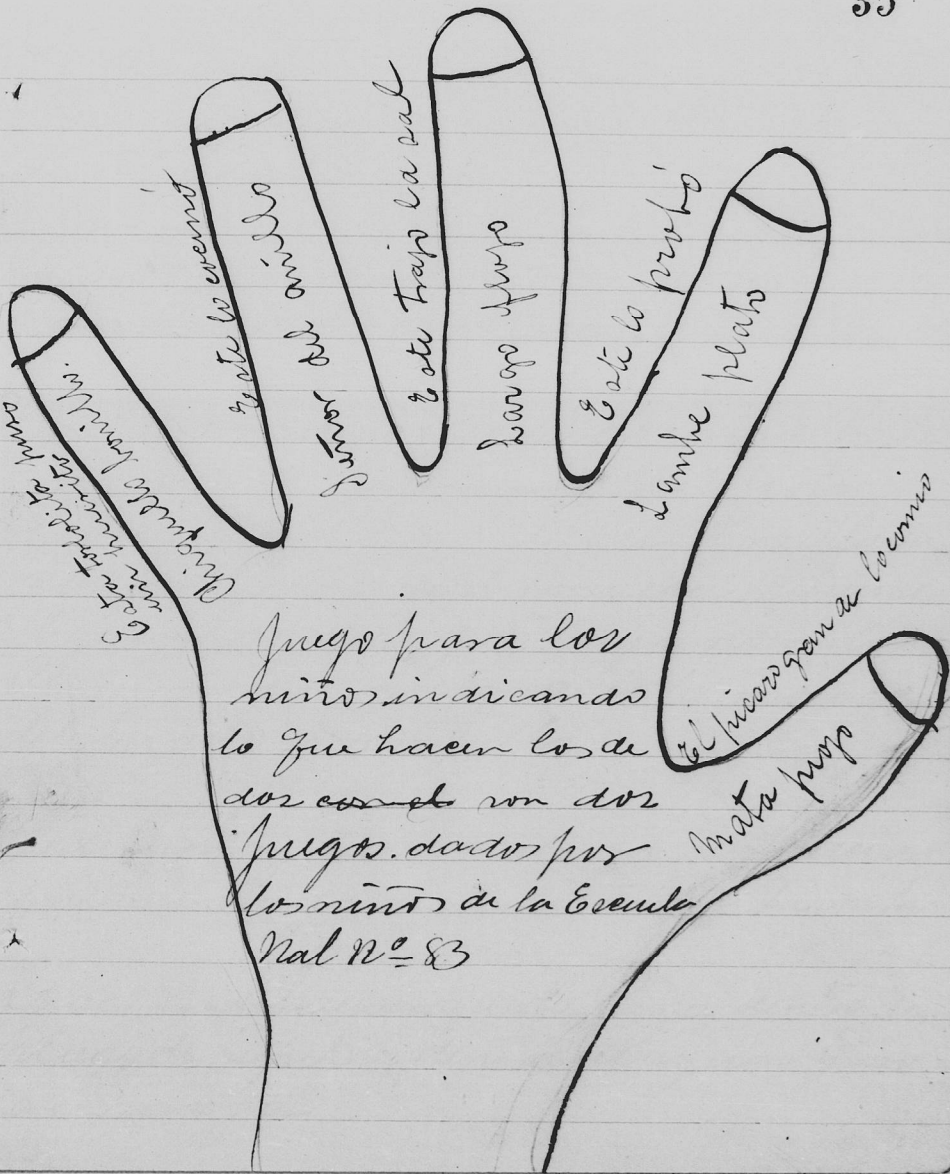 35
Esta tortolita puso
un huevito
Chiquillo bonillo.
Este lo cocinó
Señor del anillo
Este trajo la sal
Largo flojo
Este lo probó
Lambe plato
El picaro gran de lo comio
Mata piojo
Juego para los
niños indicando
lo que hacen los de
dos con el son dos
juegos. dados por
los niños de la Escuela
Nal Nº 83